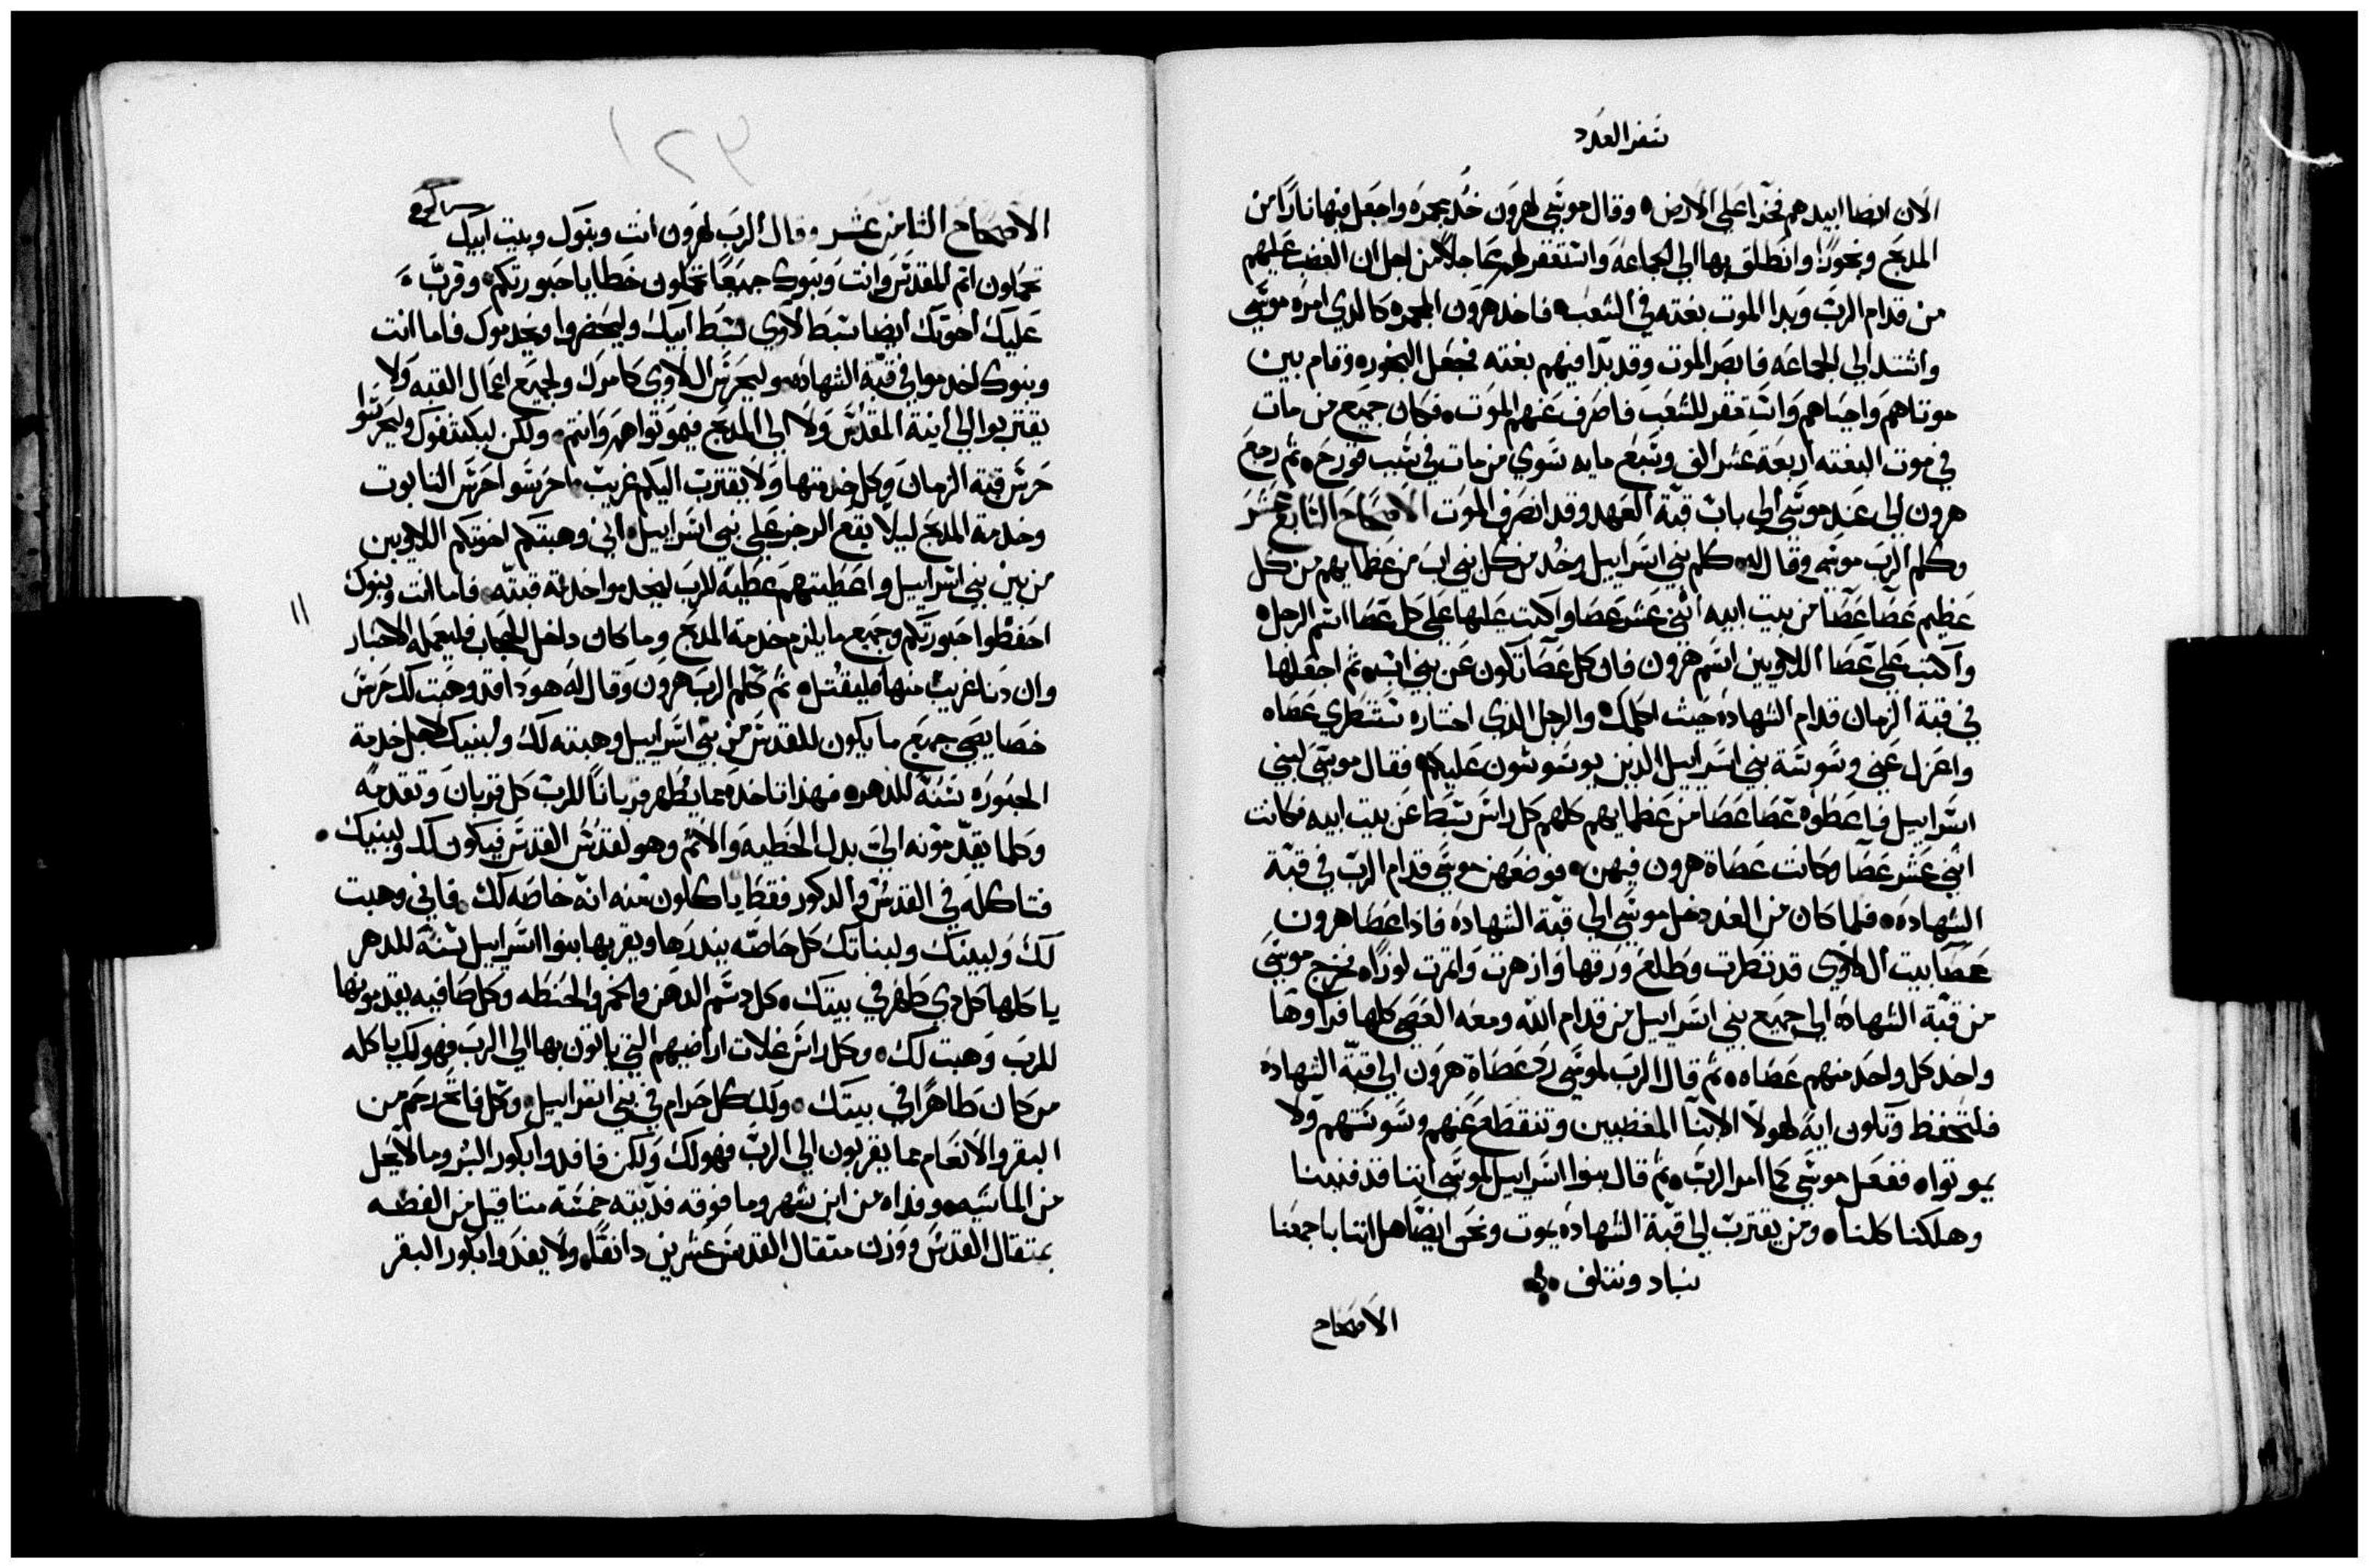 سفر العدد
الان ايضا ابيدهم فخرا على الارض وقال موسى لهرون خد مجمره واجعل فيها نارا من
المدبح وبخورا وانطلق بها الي الجماعه واستغفر لهم عاجلا من اجل ان الغضب عليهم
من قدام الرب وبدا الموت بغته في الشعب فاخد هرون المجمره كالدي امره موسى
واشتد الي الجماعه فابصر الموت وقد بدا فيهم بغته فجعل البخور وقام بين
موتاهم واحياهم واستغفر للشعب فاصرف عنهم الموت فكان جميع من مات
في موت البغته اربعة عشر الف وسبع مايه سوي من مات في سبب قورح ثم رجع
هرون الي عند موسى الي باب قبة العهد وقد انصرف الموت الاصحاح السابع عشر
وكلم الرب موسى وقال له كلم بني اسراييل وخد من كل بني اب من عظمايهم من كل
عظيم عصا عصا من بيت ابيه اثني عشر عصا واكتب عليها على كل عصا اسم الرجل
واكتب علي عصا اللاويين اسم هرون فان كل عصا تكون عن بني ابيه ثم اجعلها
في قبة الزمان قدام الشهاده حيث اكلمك والرجل الدي اختاره ستنظري عصاه
واعزل عني وسوسة بني اسراييل الدين يوسوسون عليكم فقال موسى لبني
اسراييل فاعطوه عصا عصا من عظمايهم كلهم كل راس سبط عن بيت ابيه فكانت
اثني عشر عصا وكانت عصاة هرون فيهن فوضعهن موسى قدام الرب في قبة
الشهاده فلما كان من الغد دخل موسى الي قبة الشهاده فادا عصا هرون
عصا بيت اللاوي قد نظرت وطلع ورقها وازهرت واثمرت لوزا فخرج موسى
من قبة الشهاده الي جميع بني اسراييل من قدام الله ومعه العصي كلها فراوها
واخد كل واحد منهم عصاه ثم قال الرب لموسى رد عصاة هرون الي قبة الشهاده
فلتحفظ وتكون اية لهولا الابنا المغضبين وتنقطع عنهم وسوستهم ولا
يموتوا ففعل موسى كما امر الرب ثم قال بنوا اسراييل لموسى اننا قد فنينا
وهلكنا كلنا ومن يقترب الي قبة الشهاده يموت ونحن ايضا هل اننا باجمعنا
نباد ونتلف
الاصحاح
٩٢١
الاصحاح الثامن عشر وقال الرب لهرون انت وبنوك وبيت ابيك
تحملون اثم المقدس وانت وبنوك جميعا تحملون خطايا حبورتكم وقرب
عليك اخوتك ايضا سبط لاوي سبط ابيك وليحضروا ويخدموك فاما انت
وبنوك اخدموا في قبة الشهاده وليحرس اللاوي كامرك ولجميع اعمال القبه ولا
يقتربوا الي انية المقدس ولا الي المدبح فيموتوا هم وانتم ولكن ليكتنفوك وليحرسوا
حرس قبة الزمان وكل خدمتها ولا يقترب اليكم غريب احرسوا حرس التابوت
وخدمة المدبح ليلا يقع الرجز علي بني اسراييل اني وهبتكم اخوتكم اللاويين
من بين بني اسراييل واعطيتهم عطية للرب ليخدموا خدمة قبته فاما انت وبنوك
احفظوا حبورتكم وجميع ما يلزم خدمة المدبح وما كان داخل الحجاب فليعمله الاحبار
وان دنا غريب منها فليقتل ثم كلم الرب هرون وقال له هودا قد وهبت لك حرس
خصايصي جميع ما يكون للقدس من بني اسراييل وهبته لك ولبنيك لاجل خدمة
الحبوره سنة للدهر فهدا تاخده مما يطهر قربانا للرب كل قربان وتقدمه
وكلما يقدمونه الي بدل الخطيه والاثم وهو لقدس القدس فيكون لك ولبنيك
فتاكله في القدس والدكور فقط ياكلون منه انه خاصه لك فاني وهبت
لك ولبنيك ولبناتك كل خاصه يندرها ويقربها بنوا اسراييل سنة للدهر
ياكلها كل دي طهر في بيتك كل دسم الدهن والخمر والحنطه وكل صافيه يقدمونها
للرب وهبت لك وكل راس غلات اراضيهم التي ياتون بها الي الرب فهو لك ياكله
من كان طاهرا في بيتك ولك كل حرام في بني اسراييل وكل فاتح رحم من
البقر والانعام مما يقربون الي الرب فهو لك ولكن فافدوا بكور البشر وما لا يحل
من الماشيه وفداه من ابن شهر وما فوقه فديته خمسة مثاقيل من الفضه
بمتقال القدس ووزن متقال القدس عشرين دانقا ولا يفدوا بكور البقر